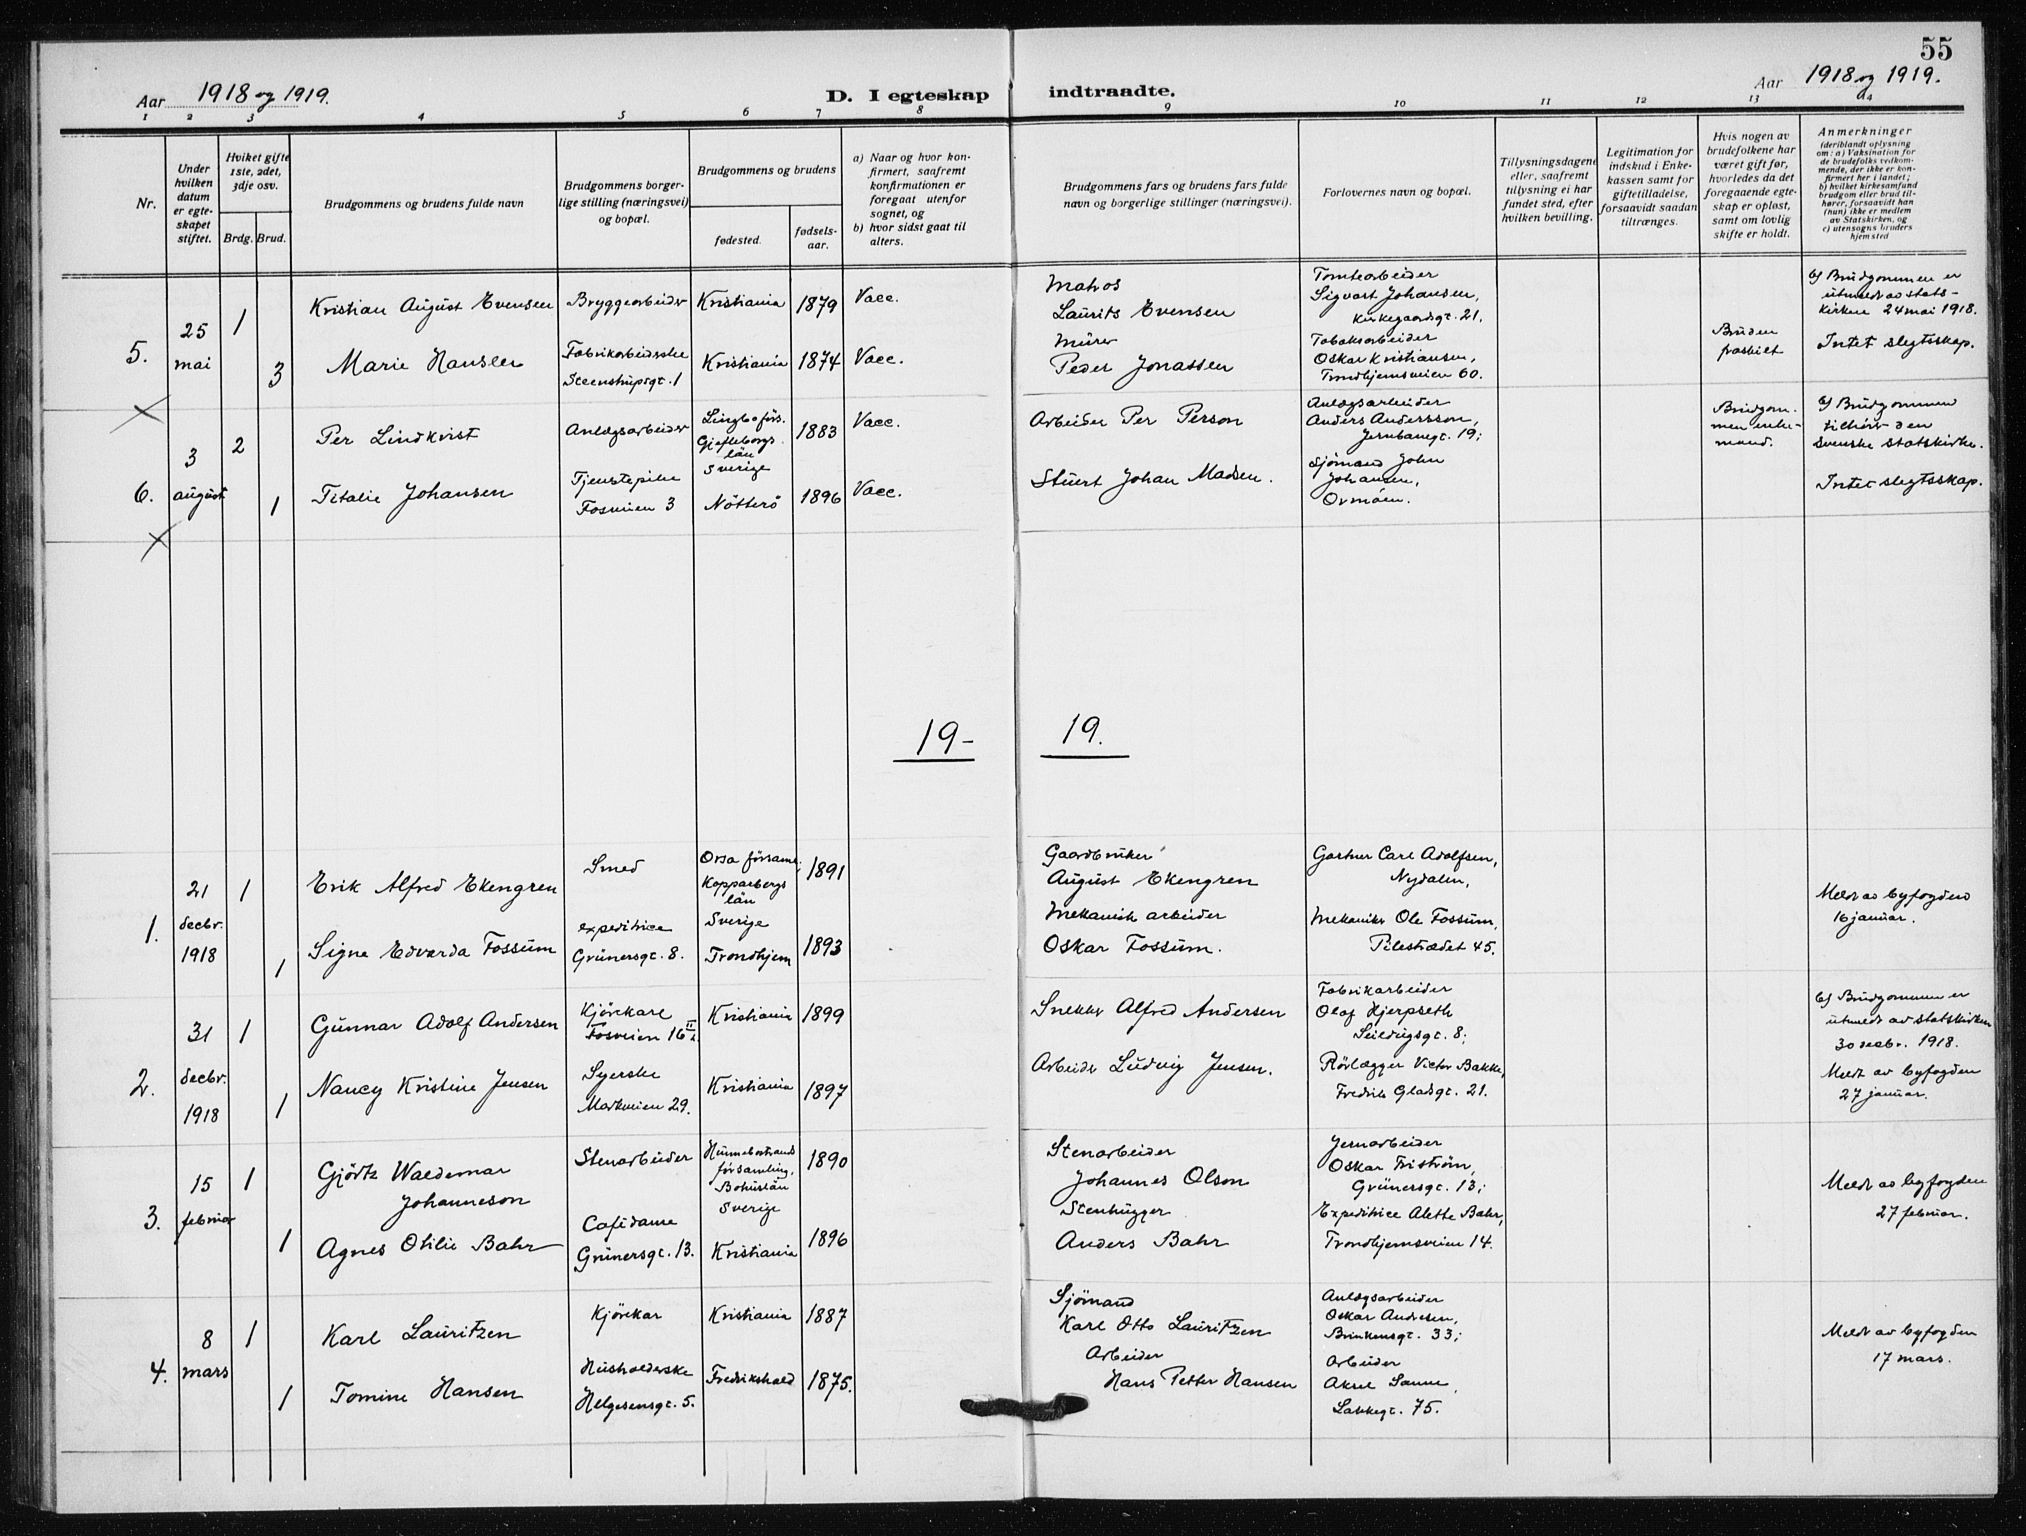 55
Aar 1918 og 1919.
D. I egteskap indtraadte.
Aar 1918 og 1919.
1 2 3 4 5 6 7 8 9 10 11 12 13 14
Nr.
Under
hvilken
datum
er egte-
skapet
stiftet.
Hviket gifte
1ste, 2det,
3dje osv.
Brdg. Brud.
Brudgommens og brudens fulde navn
Brudgommens borger-
lige stilling (næringsvei)
og bopæl.
Brudgommens og brudens
fødested.
fødsels-
aar.
a) Naar og hvor kon-
firmert, saafremt
konfirmationen er
foregaat utenfor
sognet, og
b) hvor sidst gaat til
alters.
Brudgommens fars og brudens fars fulde
navn og borgerlige stillinger (næringsvei).
Forlovernes navn og bopæl.
Tillysningsdagene
eller, saafremt
tillysning ei har
fundet sted, efter
hvilken bevilling.
Legitimation for
indskud i Enke-
kassen samt for
giftetilladelse,
forsaavidt saadan
tiltrænges.
Hvis nogen av
brudefolkene har
været gift før,
hvorledes da det
foregaaende egte-
skap er opløst,
samt om lovlig
skifte er holdt.
Anmerkninger
(deriblandt oplysning
om: a) Vaksination for
de brudefolks vedkom-
mende, der ikke er kon-
firmert her i landet;
b) hvilket kirkesamfund
brudgom eller brud til-
hører, forsaavidt han
(hun) ikke er medlem
av Statskirken, og
c) utensogns bruders
hjemsted
5.
25
mai
1
3
Kristian August Evensen
Marie Hansen
Bryggearbeider
Fabrikarbeiderske
Steenstrupsgt. 1
Kristiania 1879 Vacc.
Kristiania 1874 Vacc.
Matros
Laurits Evensen
Murer
Peder Jonassen
Tomtearbeider
Sigvart Johansen,
Kirkegaardsgt. 21.
Tobaksarbeider
Oskar Kristiansen,
Trondhjemsveien 60.
Bruden
fraskilt
b) Brudgommen er
utmeldt av stats-
kirken 24 mai 1918.
Intet slegtsskap.
6.
3
august
2
1
Per Lindkvist
Titalie Johansen
Anlægsarbeider
Tjenstepike
Fosveien 3
Lingbo förs.
Gjefleborgs
län
Sverige
Nötterö
1883 Vacc.
1896 Vacc.
Arbeider Per Person
Stuert Johan Madsen.
Anlægsarbeider
Anders Andersson,
Jernbanegt. 19;
Sjömand John
Johansen,
Ormöen.
Brudgom-
men enke-
mand.
b) Brudgommen
tilhörer den
svenske statskirke.
Intet slegtsskap.
19- 19.
1.
21
decbr.
1918
1
1
Erik Alfred Ekengren
Signe Edvarda Fossum
Smed
expeditrice
Grünersgt. 8.
Orsa församl.
Kopparbergs
län
Sverige
Trondhjem
1891
1893
Gaardbruker
August Ekengren
Mekanisk arbeider
Oskar Fossum.
Gartner Carl Adolfsen,
Nydalen,
Mekaniker Ole Fossum,
Pilestrædet 45.
Meldt av byfogden
16 januar.
2.
31
decbr.
1918
1
1
Gunnar Adolf Andersen
Nancy Kristine Jensen
Kjörekarl
Fosveien 16
Syerske
Markveien 29.
Kristiania 1899
Kristiania 1897
Snekker Alfred Andersen
Arbeider Ludvig Jensen.
Fabrikarbeider
Olaf Hjerpseth
Seildugsgt. 8;
Rörlægger Victor Bakke,
Fredrik Gladsgt. 21.
b) Brudgommen er
utmeldt av statskirken
30 decbr. 1918.
Meldt av byfogden
27 januar.
3.
15
februar
1
1
Gjörtz Waldemar
Johanneson
Agnes Otilie Bahr
Stenarbeider
Cafedame
Grünersgt. 13.
Hunnebostrands
församling,
Bohuslän
Sverige
Kristiania
1890
1896
Stenarbeider
Johannes Olson
Stenhugger
Anders Bahr
Jernarbeider
Oskar Friström,
Grünersgt. 13;
Expeditrice Alette Bahr,
Trondhjemsveien 14.
Meldt av byfogden
27 februar.
4.
8
mars
1
1
Karl Lauritzen
Tomine Hansen
Kjörekar
Husholderske
Helgesensgt. 5.
Kristiania 1887
Fredrikshald 1875.
Sjömand
Karl Otto Lauritzen
Arbeider
Hans Petter Hansen
Anlægsarbeider
Oskar Andresen,
Brinkensgt. 33;
Arbeider
Aksel Sanne,
Lakkegt. 75.
Meldt av byfogden
17 mars.